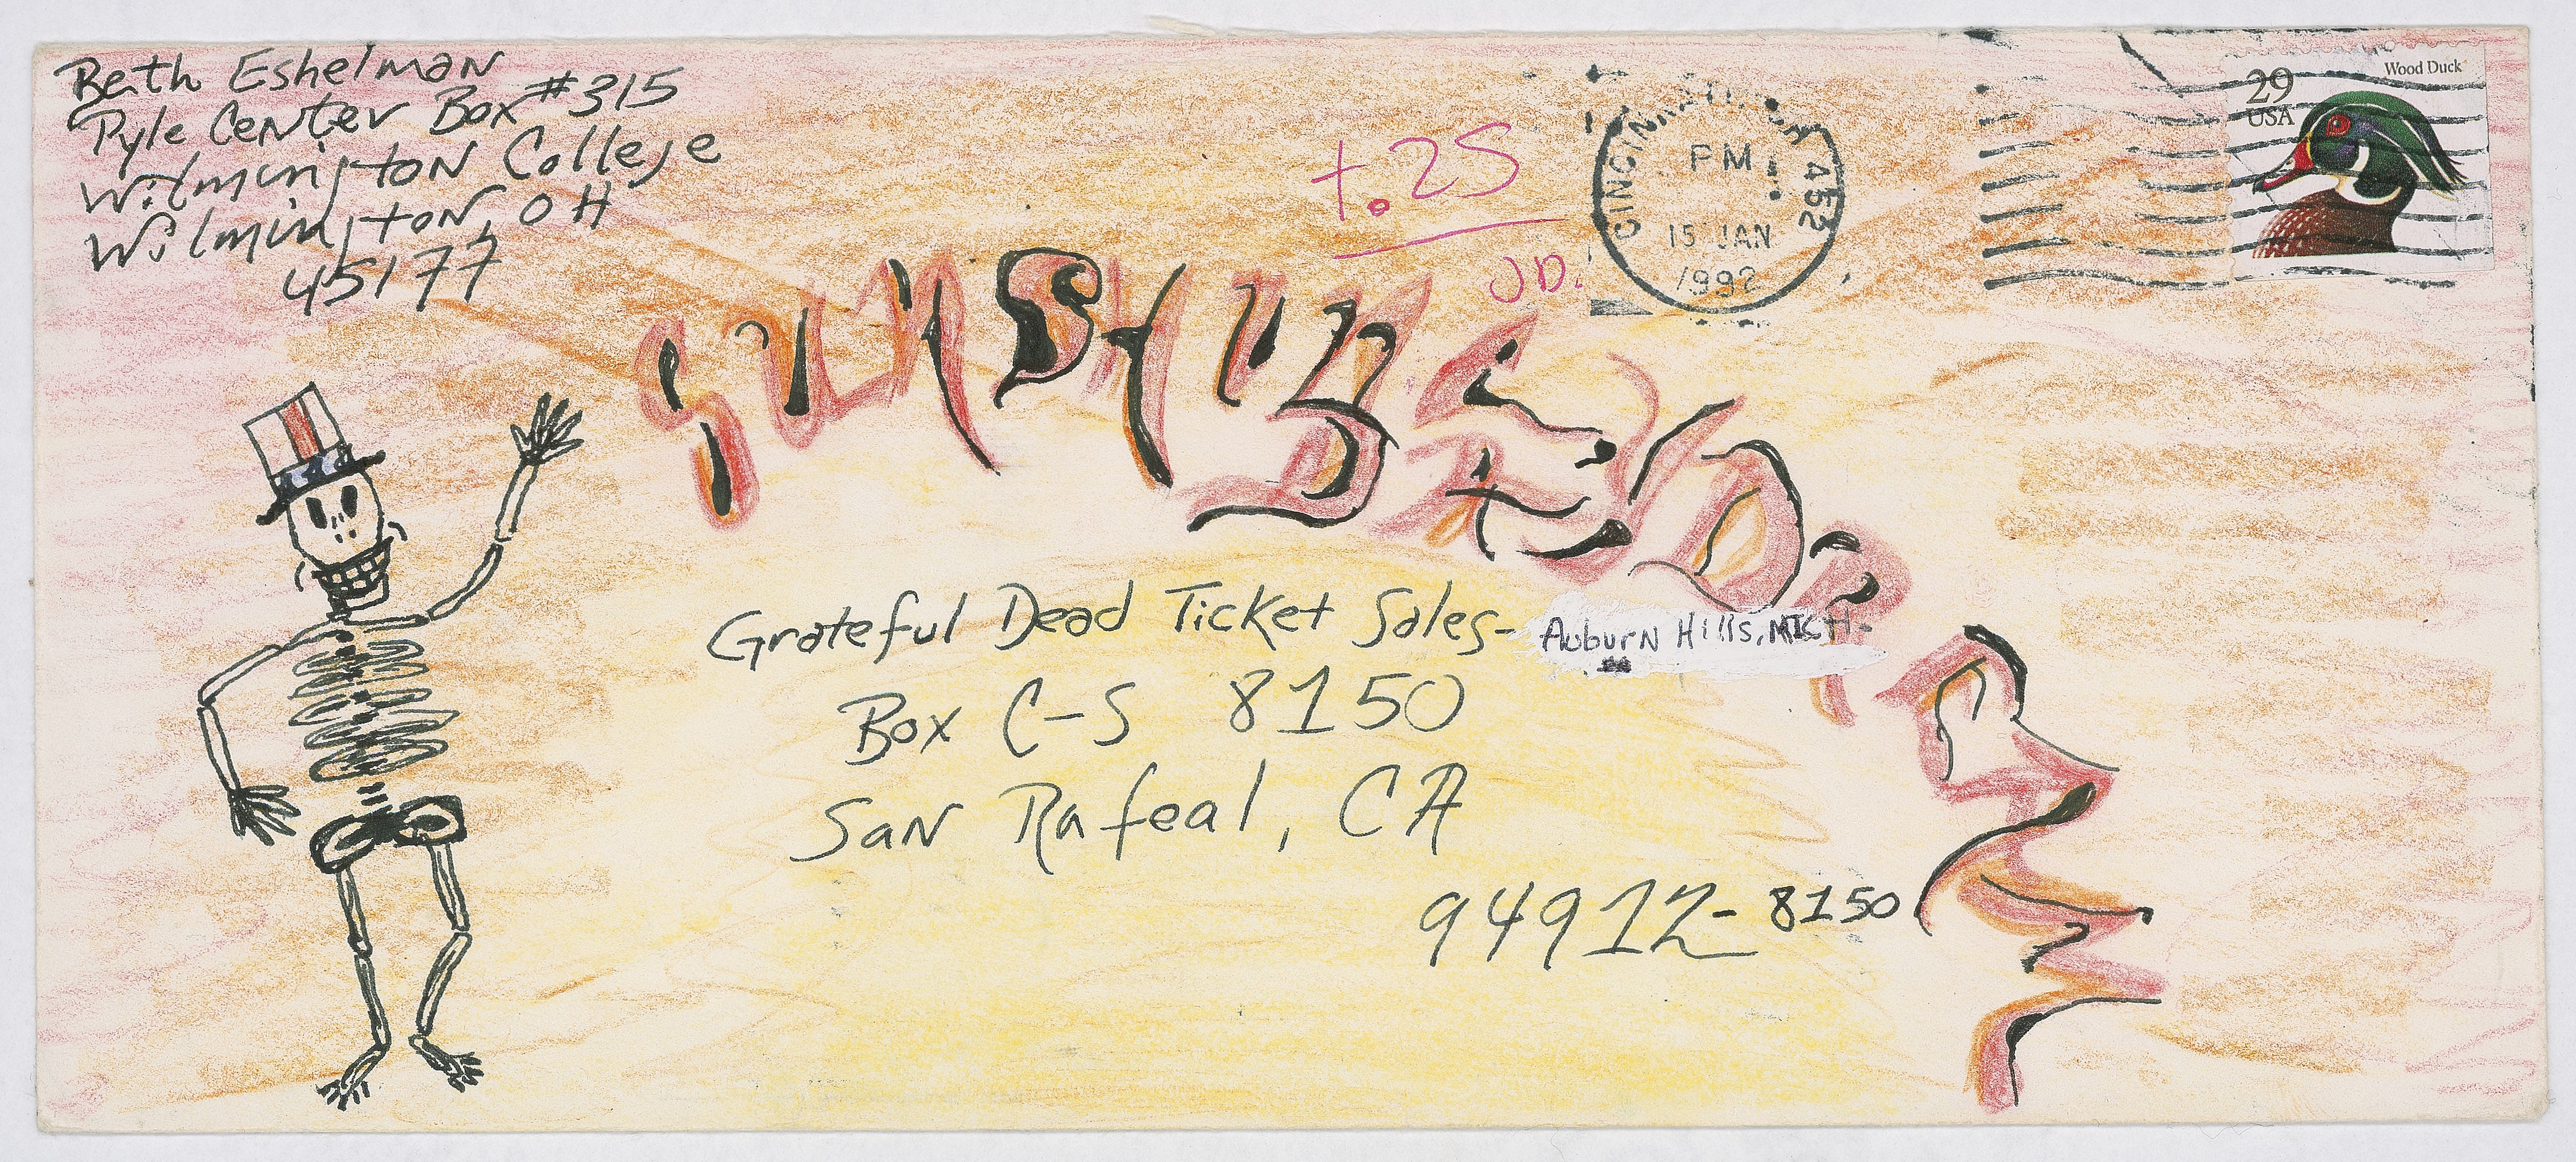 Beth Eshelman
Pyle Center Box #315
Wilmington College
Wilmington, OH
45177
+.25
JD.
CINCINNATI, OH 452
PM
15 JAN
1992
29
USA
Wood Duck
SUNSHINE DAYDREAM
Grateful Dead Ticket Sales- Auburn Hills, MICH.
Box C-S 8150
San Rafeal, CA
94912-8150